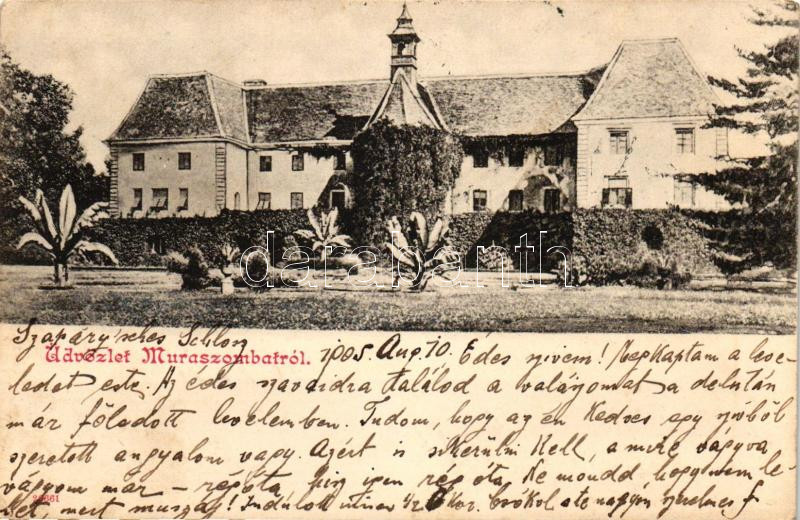 darabanth
Szapáry'sches Schloss
Üdvözlet Muraszombatról.
1905. Aug. 10. Édes szivem! Megkaptam a leve-
ledet este. Az édes szavaidra találod a válaszomat a délután
már föladott levelemben. Tudom, hogy az én kedves egy jóból
szeretett angyalom vagy. Azért is sikerülni kell, a mire vágyva
vágyom már – régóta, hisz igen régóta. Ne mondd, hogy nem le-
het, mert muszáj! Indulok innen 1/2 6 kor. Csókol a te nagyon
22661